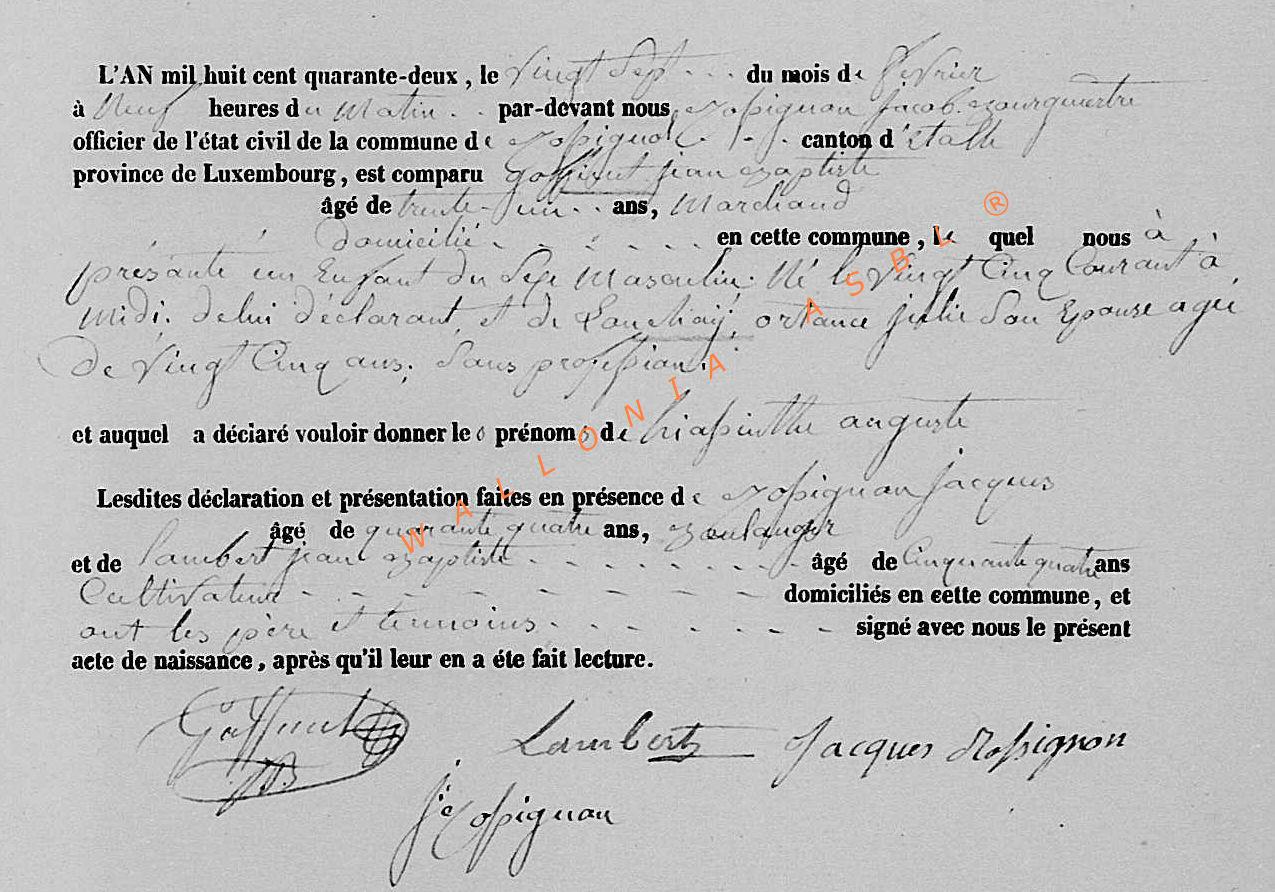 L'AN mil huit cent quarante-deux, le vingt Sept - - - du mois de fevrier
à Neuf heures du Matin - - par-devant nous Rossignon Jacob Bourguestre
officier de l'état civil de la commune de Rossignol - - - canton d'étalle
province de Luxembourg, est comparu Goffinet jean Baptiste
âgé de trente-un - - ans, Marchand
domicilié - - - - - - en cette commune, le quel nous à
présanté un Enfant du Sexe Masculin: Né le vingt Cinq Courant à
midi. de lui déclarant, et de ortance julie Son Epouse agée
de vingt Cinq ans, Sans profession.
et auquel a déclaré vouloir donner les prénoms de hiassinthe auguste
Lesdites déclaration et présentation faites en présence de Rossignon jacques
âgé de quarante quatre ans, Boulanger
et de lambert jean Baptiste - - - - - - - - âgé de Cinquante quatre ans
Cultivateur - - - - - - - - domiciliés en cette commune, et
ont les père et temoins - - - - - - - - signé avec nous le présent
acte de naissance, après qu'il leur en a éte fait lecture.
Goffinet JB
Lambert Jacques Rossignon
J Rossignon
WALLONIA ASBL ®